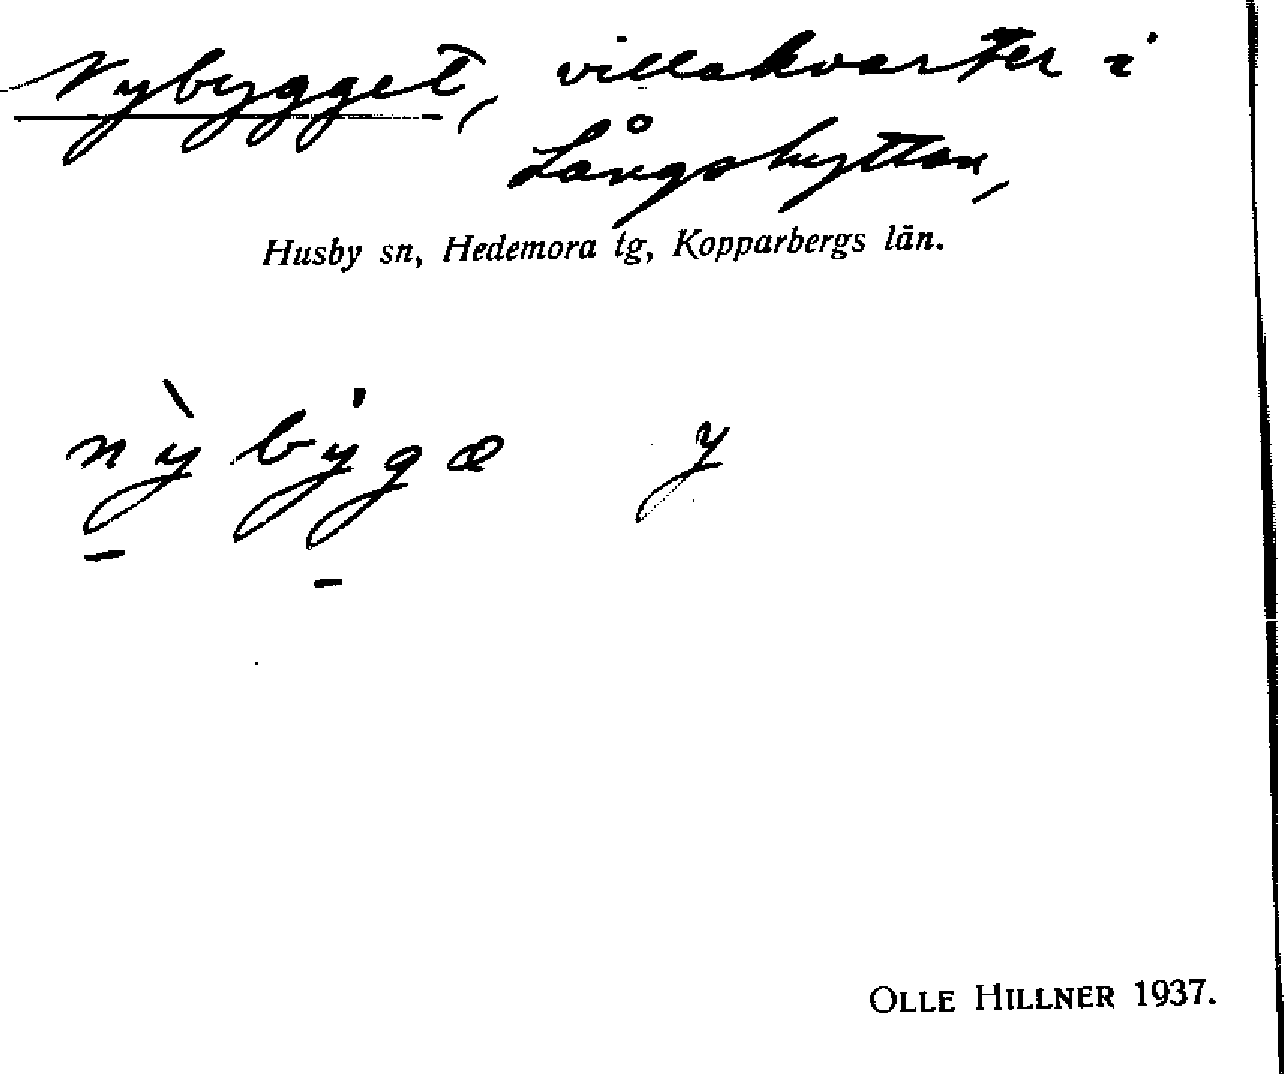 Nybygget, villakvarter i
Långshyttan,
Husby sn, Hedemora tg, Kopparbergs län.
nỳbýgæ y
OLLE HILLNER 1937.